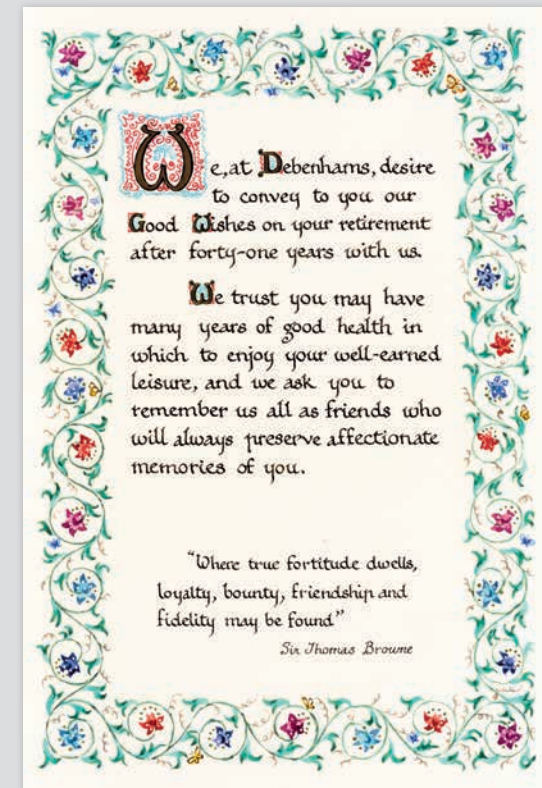 We, at Debenhams, desire
to convey to you our
Good Wishes on your retirement
after forty-one years with us.
We trust you may have
many years of good health in
which to enjoy your well-earned
leisure, and we ask you to
remember us all as friends who
will always preserve affectionate
memories of you.
"Where true fortitude dwells,
loyalty, bounty, friendship and
fidelity may be found"
Sir Thomas Browne